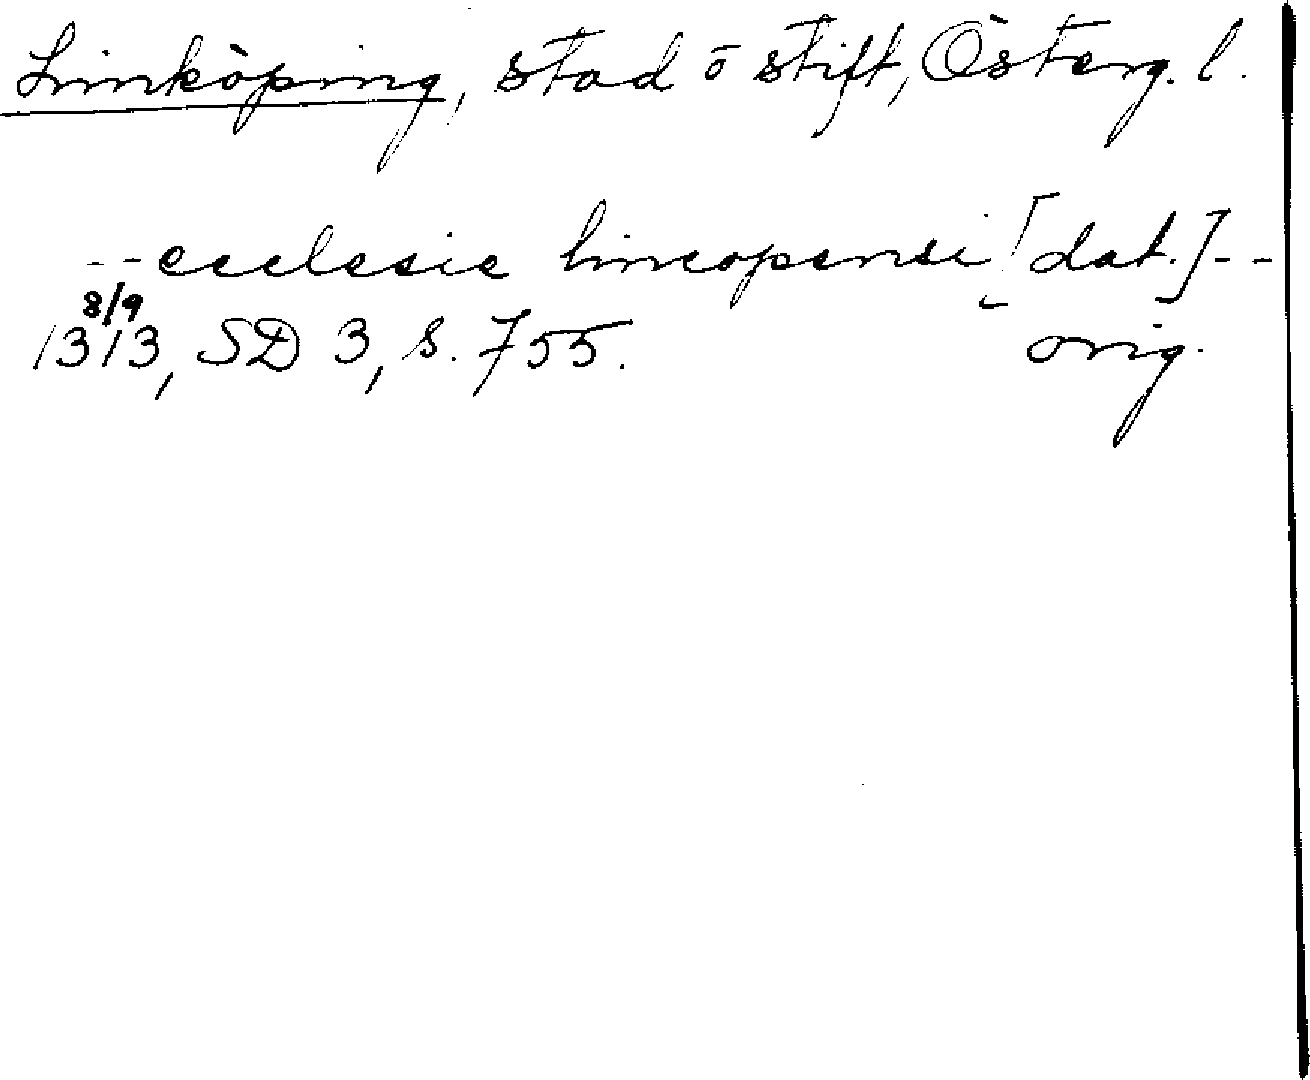 Linköping, stad o stift, Österg. l.
--ecclesie lincopensi [dat.]--
8/9
1313, SD 3, s. 755. orig.